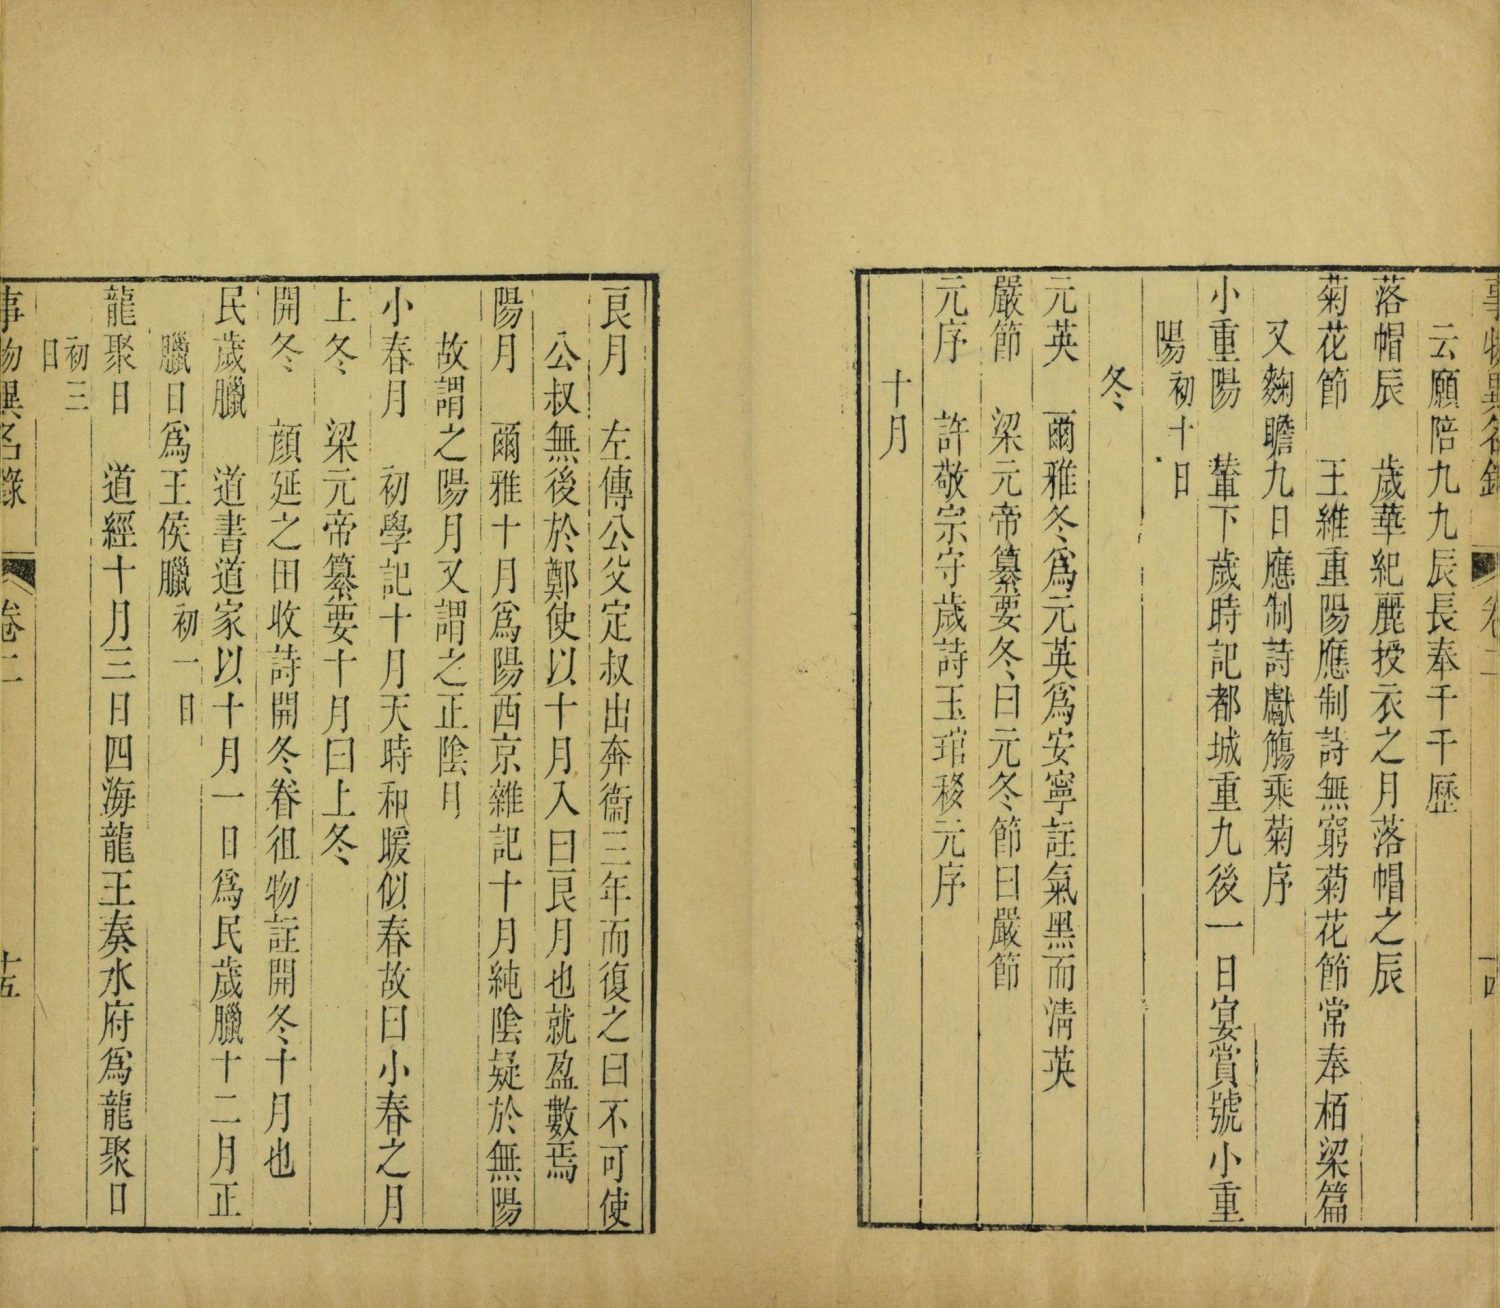 事物異名錄 卷二 十四
云願陪九九辰長奉千千歷
落帽辰 歲華紀麗授衣之月落帽之辰
菊花節 王維重陽應制詩無窮菊花節常奉栢梁篇
又麴瞻九日應制詩獻觴乘菊序
小重陽 輦下歲時記都城重九後一日宴賞號小重
陽初十日
冬
元英 爾雅冬爲元英爲安寧註氣黑而淸英
嚴節 梁元帝纂要冬曰元冬節曰嚴節
元序 許敬宗守歲詩玉琯移元序
十月
良月 左傳公父定叔出奔衞三年而復之曰不可使
公叔無後於鄭使以十月入曰良月也就盈數焉
陽月 爾雅十月爲陽西京雜記十月純陰疑於無陽
故謂之陽月又謂之正陰月
小春月 初學記十月天時和暖似春故曰小春之月
上冬 梁元帝纂要十月曰上冬
開冬 顔延之田收詩開冬眷徂物註開冬十月也
民歲臘 道書道家以十月一日爲民歲臘十二月正
臘日爲王侯臘初一日
龍聚日 道經十月三日四海龍王奏水府爲龍聚日
初三日
事物異名錄 卷二 十五